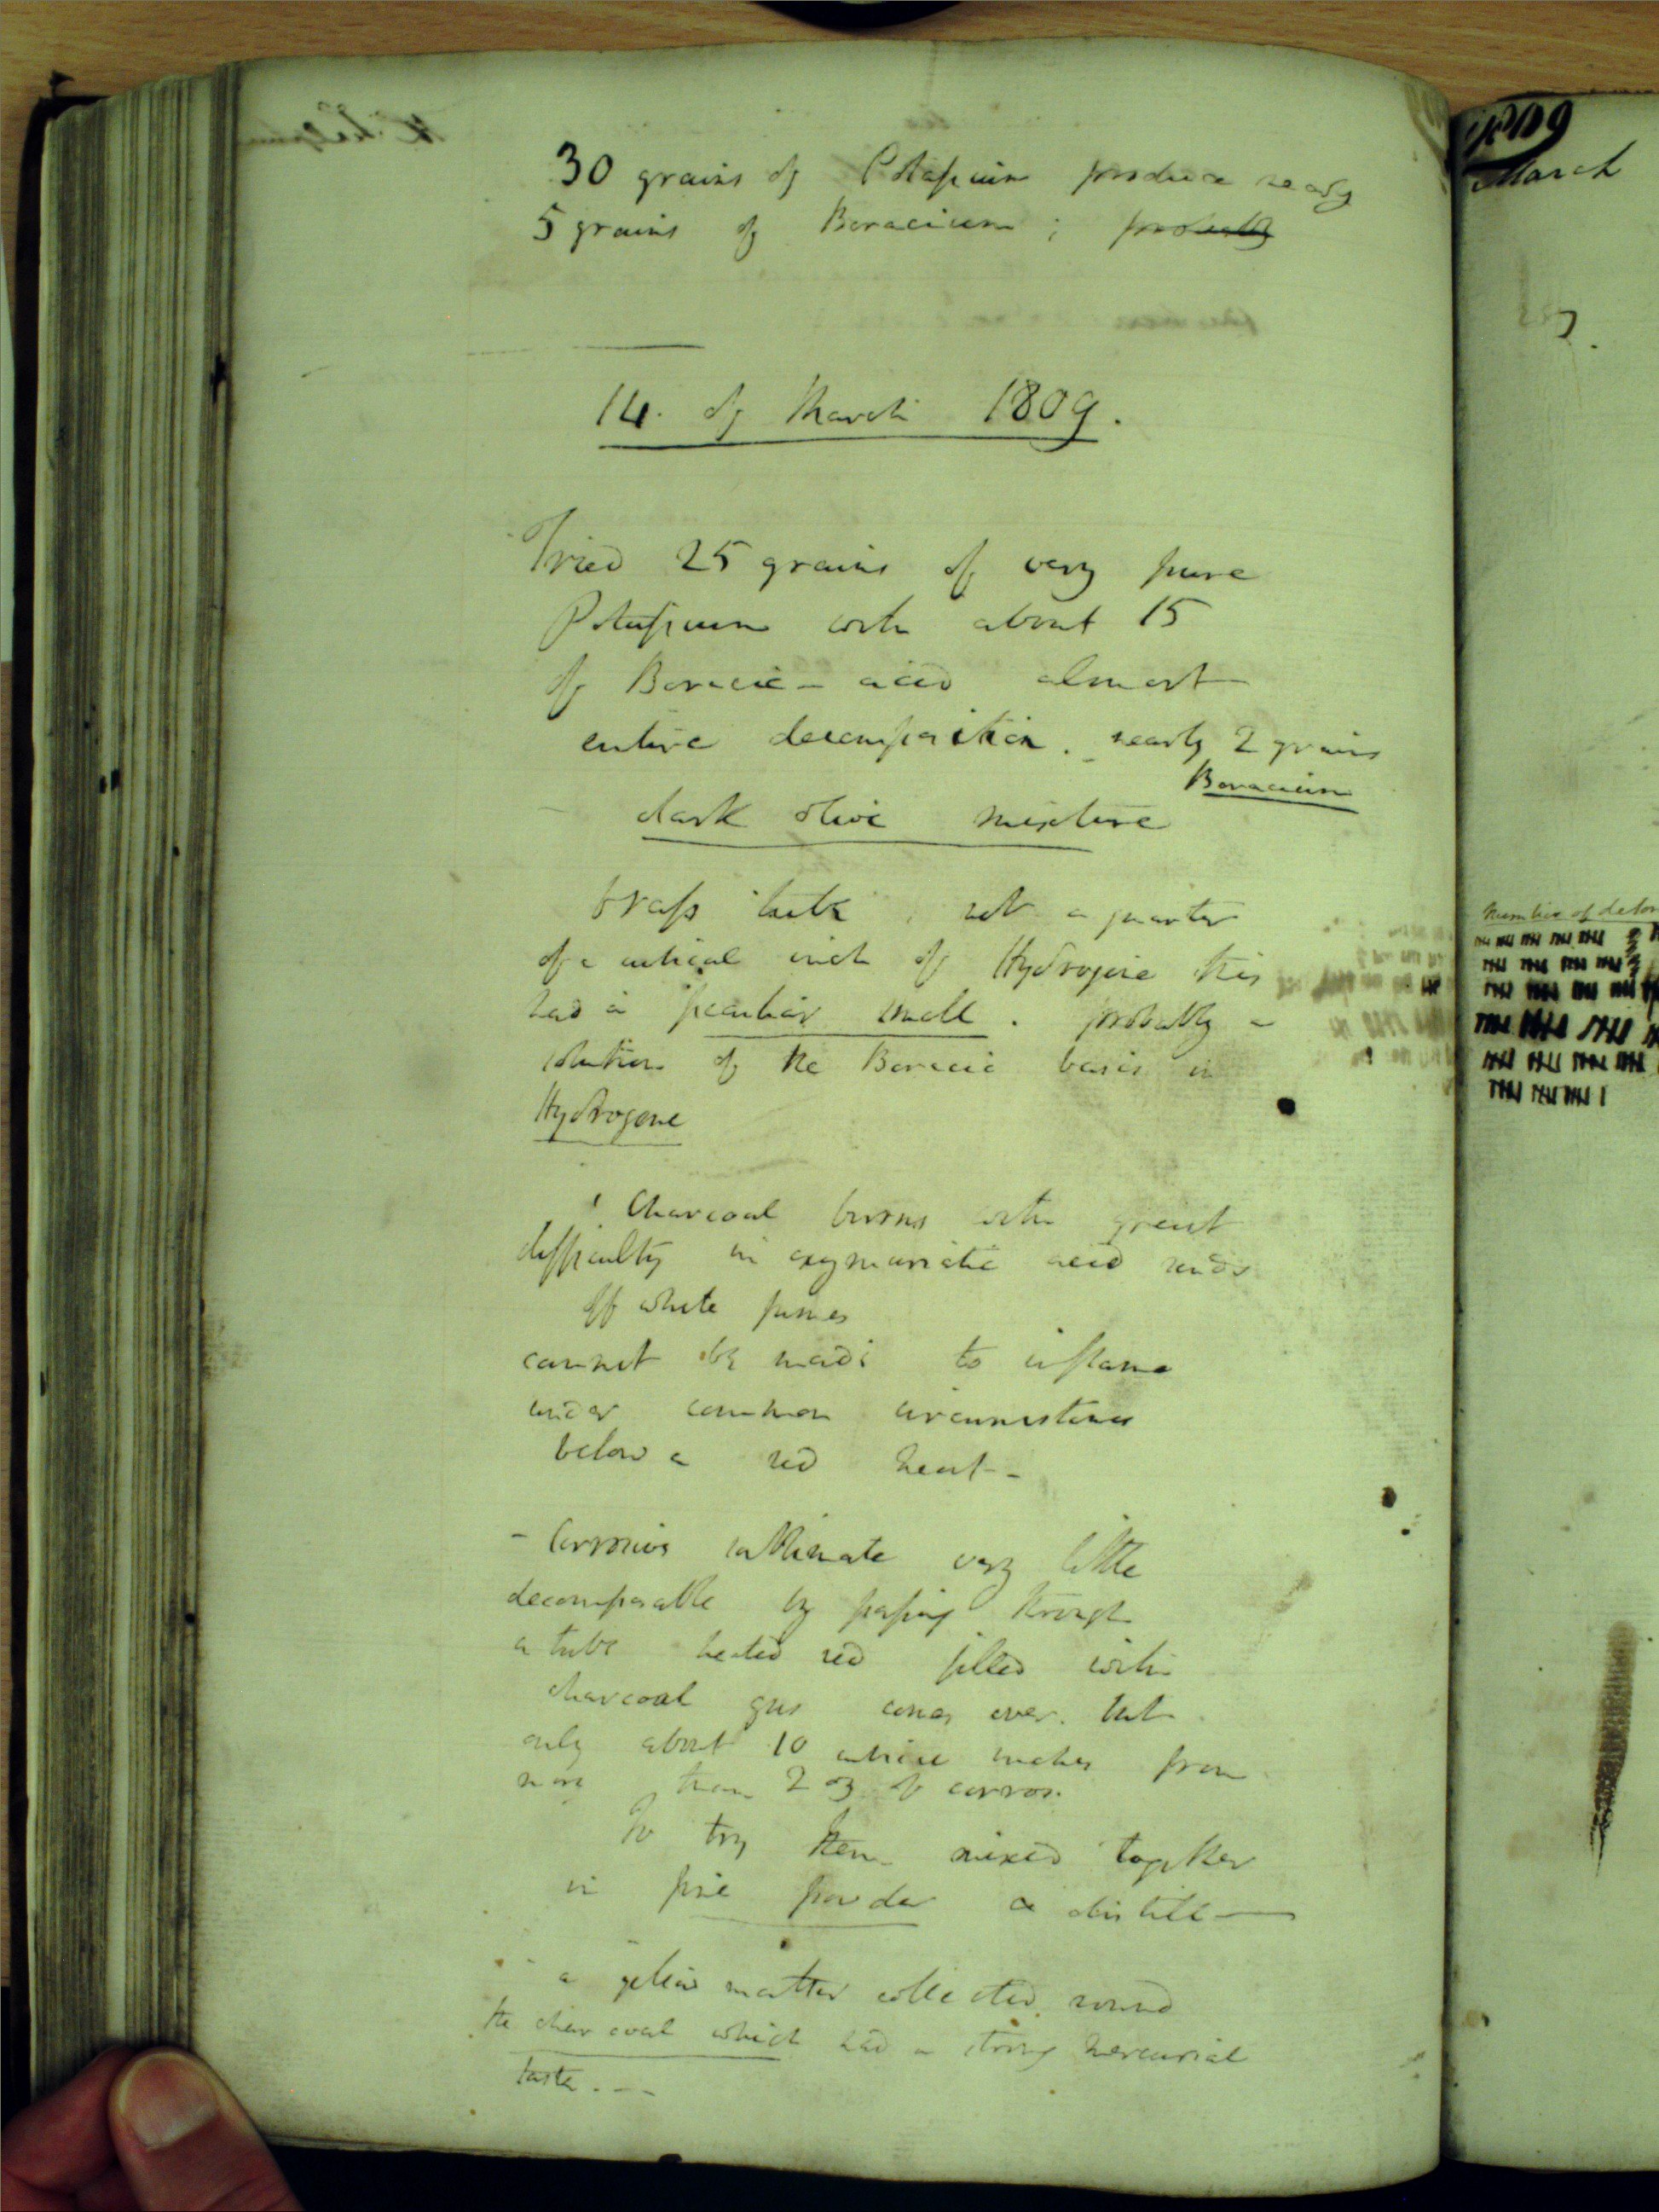 30 grains of Potassium produce nearly
5 grains of Boracium ; probably
14. of March 1809.
Tried 25 grains of very pure
Potassium with about 15
of Boracic - acid almost
entire decomposition. nearly 2 grains
Boracium
dark olive mixture
brass tube, not a quarter
of a cubical inch of Hydrogene this
had a peculiar smell. probably a
solution of the Boracic basis in
Hydrogene
Charcoal burns with great
difficulty in oxymuriatic acid sends
off white fumes
cannot be made to inflame
under common circumstances
below a red heat -
- Corrosive sublimate very little
decomposable by passing through
a tube heated red filled with
charcoal gas comes over. but
only about 10 cubical inches from
more than 2 oz of corros.
To try them mixed together
in fine powder & distill —
- a yellow matter collected round
the charcoal which had a strong mercurial
taste. - -
1809
March
Number of